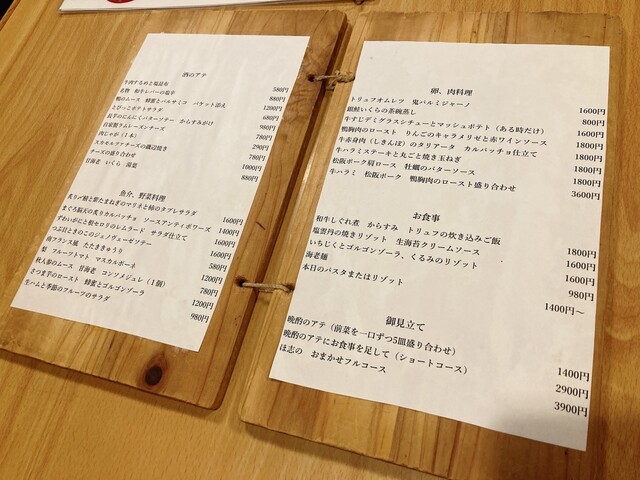 酒のアテ
牛肉するめと塩昆布 580円
名物 和牛レバーの塩辛 880円
鴨のムース 蜂蜜とバルサミコ バケット添え 1200円
とびっこポテトサラダ 680円
長芋のにんにくバターソテー からすみがけ 980円
自家製ラムレーズンチーズ 780円
肉じゃが(1本) 290円
スカモルツァチーズの磯辺焼き 780円
チーズの盛り合わせ 1000円
甘海老 いくら 湯葉 880円
魚介、野菜料理
炙り〆鯖と紫たまねぎのマリネと柿のタブレサラダ 1600円
まぐろ脳天の炙りカルパッチョ ソースアンティボワーズ 1400円
ずわいがにと根セロリのレムラード サラダ仕立て 1600円
つぶ貝ときのこのジェノヴェーゼソテー 1600円
南フランス風 たたききゅうり 580円
梨 フルーツトマト マスカルポーネ 1200円
秋人参のムース 甘海老 コンソメジュレ(1個) 780円
さつま芋のロースト 蜂蜜とゴルゴンゾーラ 1200円
生ハムと季節のフルーツのサラダ 980円
卵、肉料理
トリュフオムレツ 鬼パルミジャーノ 1600円
銀鮭いくらの茶碗蒸し 800円
牛すじデミグラスシチューとマッシュポテト(ある時だけ)
鴨胸肉のロースト りんごのキャラメリゼと赤ワインソース
牛赤身肉(しきんぼ)のタリアータ カルパッチョ仕立て
牛ハラミステーキと丸ごと焼き玉ねぎ
松阪ポーク肩ロース 牡蠣のバターソース
牛ハラミ 松阪ポーク 鴨胸肉のロースト盛り合わせ 3600円
お食事
和牛しぐれ煮 からすみ トリュフの炊き込みご飯 1800円
塩雲丹の焼きリゾット 生海苔クリームソース 1600円
いちじくとゴルゴンゾーラ、くるみのリゾット 1600円
海老麺 980円
本日のパスタまたはリゾット 1400円〜
御見立て
晩酌のアテ(前菜を一口ずつ5皿盛り合わせ) 1400円
晩酌のアテにお食事を足して(ショートコース) 2900円
ほ志の おまかせフルコース 3900円